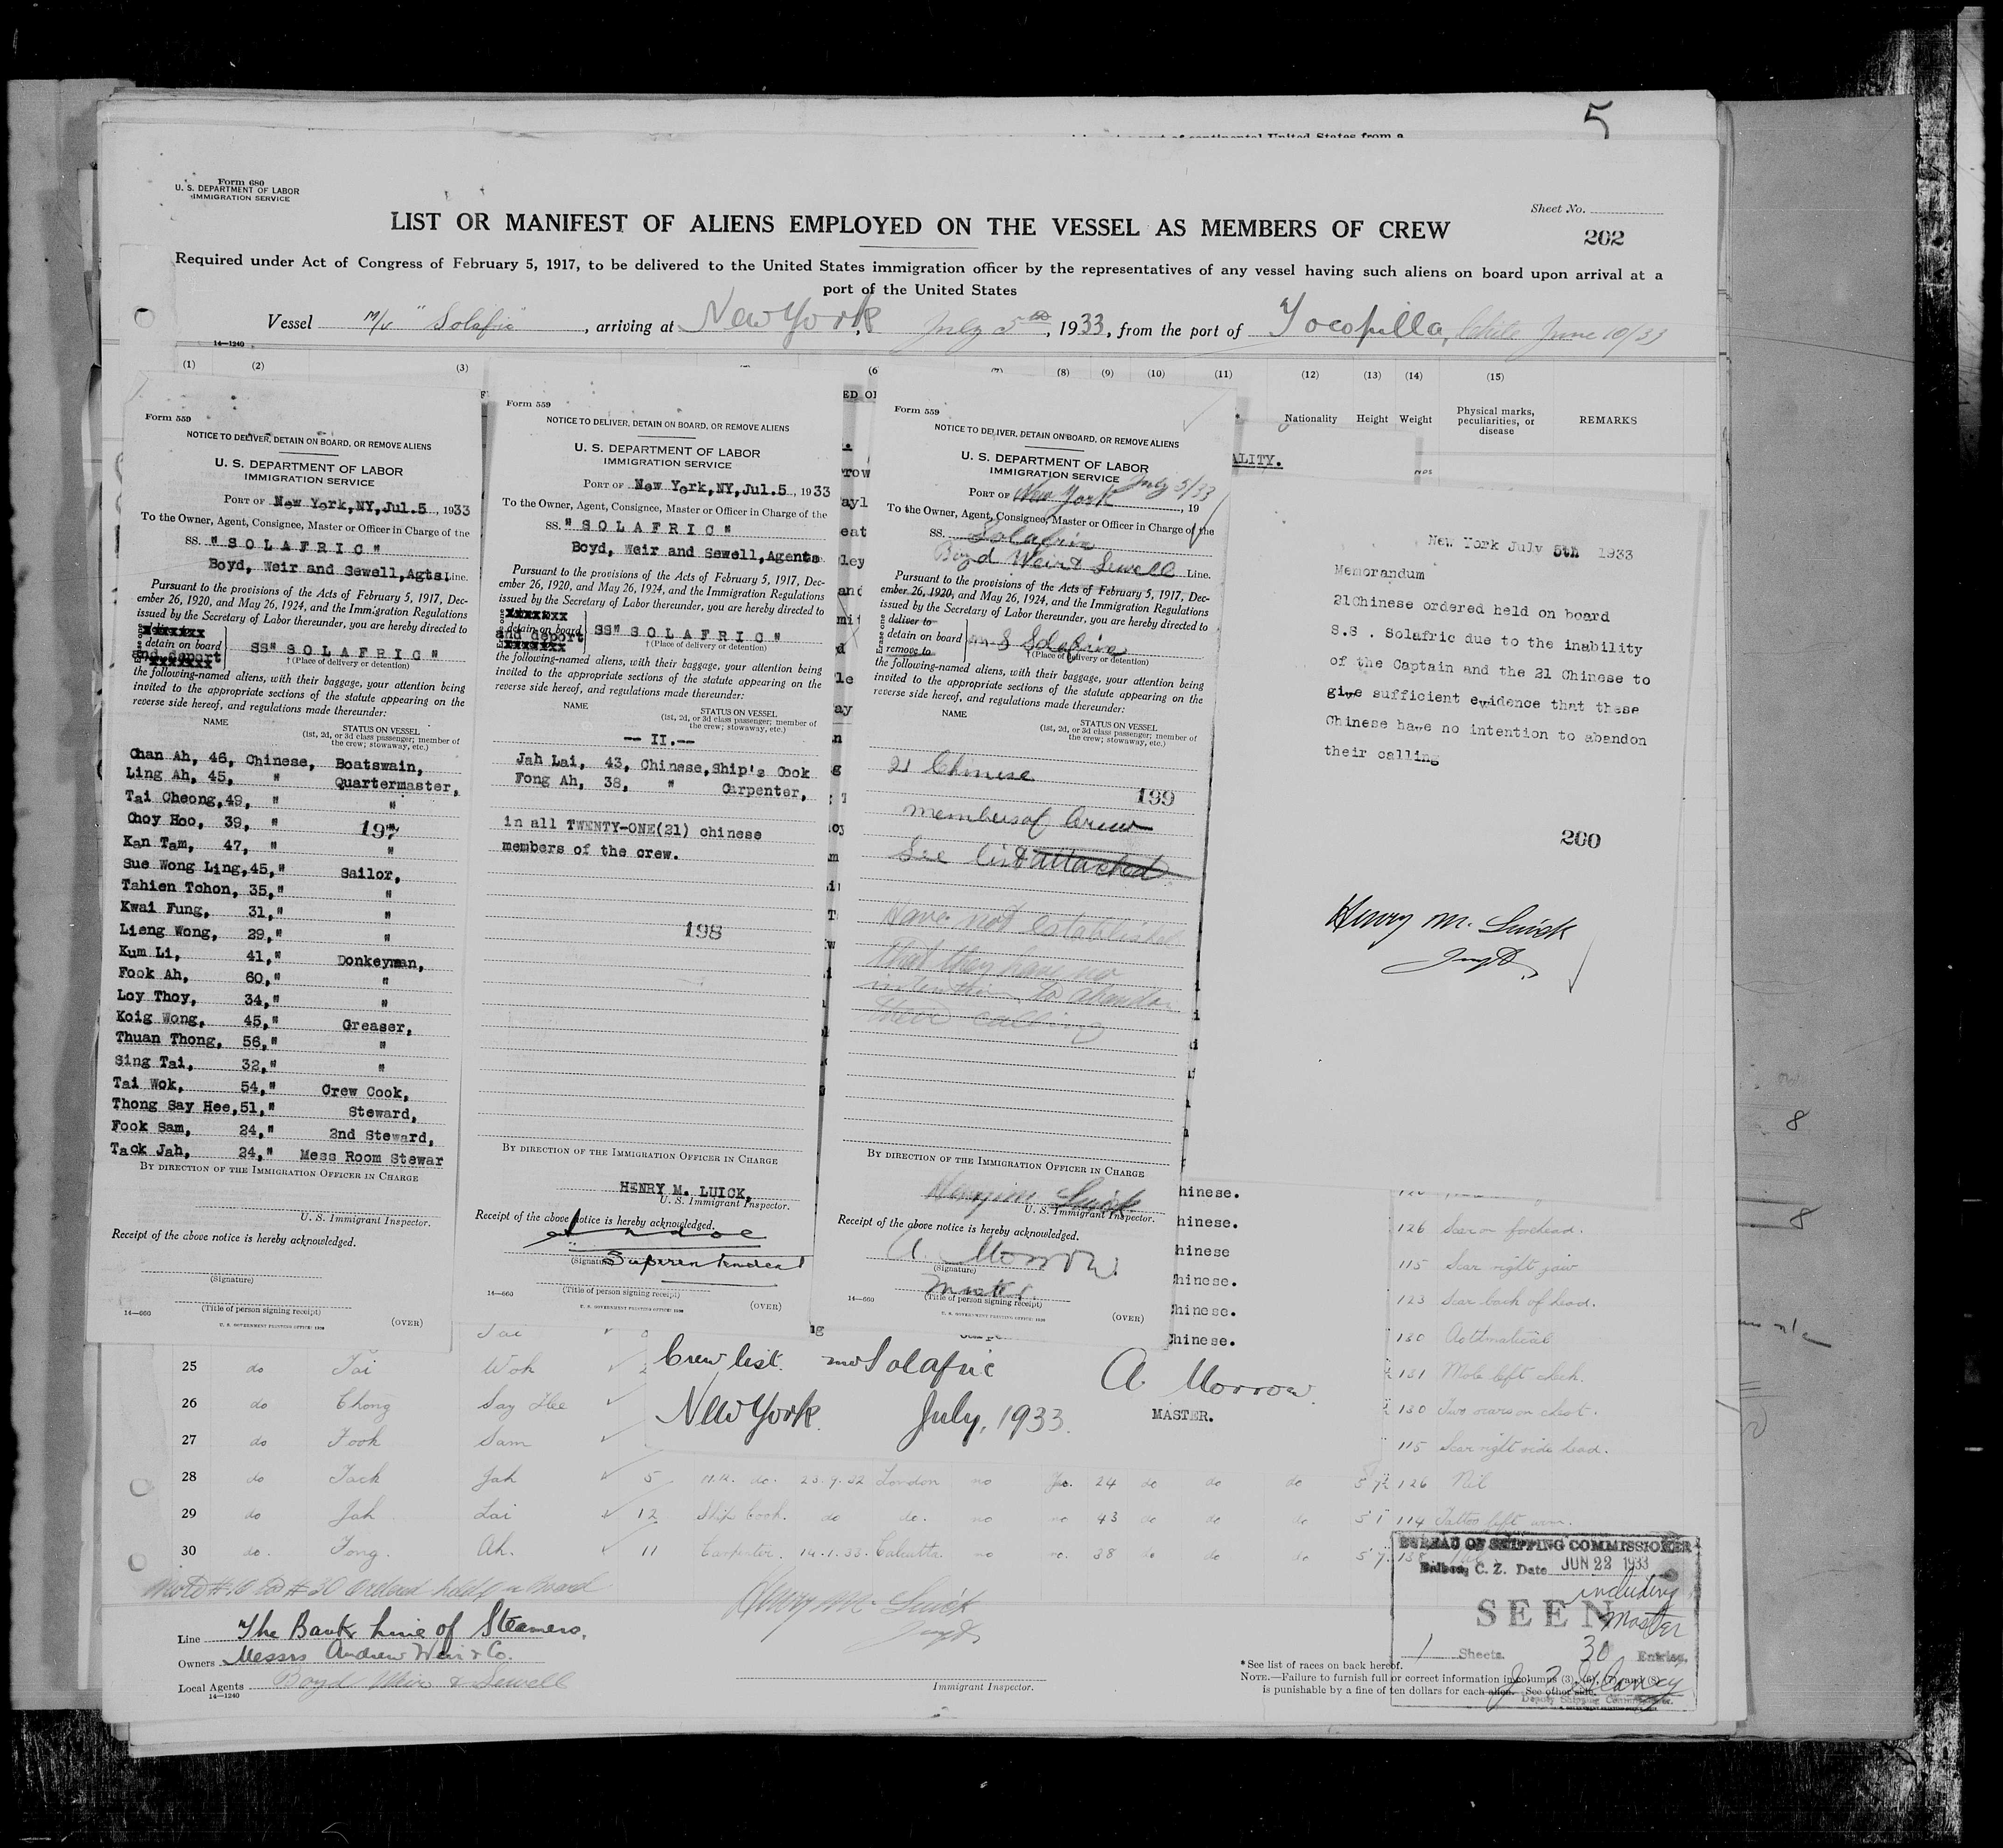 5
Form 680
U. S. DEPARTMENT OF LABOR
IMMIGRATION SERVICE
Sheet No.
LIST OR MANIFEST OF ALIENS EMPLOYED ON THE VESSEL AS MEMBERS OF CREW
202
Required under Act of Congress of February 5, 1917, to be delivered to the United States immigration officer by the representatives of any vessel having such aliens on board upon arrival at a
port of the United States
Vessel m/v "Solafric", arriving at New York, July 5th, 1933, from the port of Tocopilla, Chile June 10/33
14—1240
(1) (2) (3) (8) (9) (10) (11) (12) (13) (14) (15)
Nationality Height Weight Physical marks, peculiarities, or disease REMARKS
Form 559
NOTICE TO DELIVER, DETAIN ON BOARD, OR REMOVE ALIENS
U. S. DEPARTMENT OF LABOR
IMMIGRATION SERVICE
PORT OF New York,NY,Jul.5, 1933
To the Owner, Agent, Consignee, Master or Officer in Charge of the
SS. "SOLAFRIC"
Boyd, Weir and Sewell,Agts. Line.
Pursuant to the provisions of the Acts of February 5, 1917, Dec-
ember 26, 1920, and May 26, 1924, and the Immigration Regulations
issued by the Secretary of Labor thereunder, you are hereby directed to
detain on board
and deport
SS" SOLAFRIC"
† (Place of delivery or detention)
the following-named aliens, with their baggage, your attention being
invited to the appropriate sections of the statute appearing on the
reverse side hereof, and regulations made thereunder:
NAME STATUS ON VESSEL
(1st, 2d, or 3d class passenger; member of
the crew; stowaway, etc.)
Chan Ah, 46, Chinese, Boatswain,
Ling Ah, 45, " Quartermaster,
Tai Cheong,49, " "
Choy Hoo, 39, " "
197
Kan Tam, 47, " "
Sue Wong Ling,45," Sailor,
Tahien Tchon, 35," "
Kwai Fung, 31," "
Lieng Wong, 29," "
Kum Li, 41," Donkeyman,
Fook Ah, 60," "
Loy Thoy, 34," "
Koig Wong, 45," Greaser,
Thuan Thong, 56," "
Sing Tai, 32," "
Tai Wok, 54," Crew Cook,
Thong Say Hee,51," Steward,
Fook Sam, 24," 2nd Steward,
Tack Jah, 24," Mess Room Stewar
BY DIRECTION OF THE IMMIGRATION OFFICER IN CHARGE
U. S. Immigrant Inspector.
Receipt of the above notice is hereby acknowledged.
(Signature)
(Title of person signing receipt)
14—660
U. S. GOVERNMENT PRINTING OFFICE
(OVER)
Form 559
NOTICE TO DELIVER, DETAIN ON BOARD, OR REMOVE ALIENS
U. S. DEPARTMENT OF LABOR
IMMIGRATION SERVICE
PORT OF New York,NY,Jul.5, 1933
To the Owner, Agent, Consignee, Master or Officer in Charge of the
SS. "SOLAFRIC"
Boyd, Weir and Sewell,Agents
Pursuant to the provisions of the Acts of February 5, 1917, Dec-
ember 26, 1920, and May 26, 1924, and the Immigration Regulations
issued by the Secretary of Labor thereunder, you are hereby directed to
detain on board
and deport
SS" SOLAFRIC"
† (Place of delivery or detention)
the following-named aliens, with their baggage, your attention being
invited to the appropriate sections of the statute appearing on the
reverse side hereof, and regulations made thereunder:
NAME STATUS ON VESSEL
(1st, 2d, or 3d class passenger; member of
the crew; stowaway, etc.)
-- II.--
Jah Lai, 43, Chinese,Ship's Cook
Fong Ah, 38, " Carpenter,
in all TWENTY-ONE(21) chinese
members of the crew.
198
BY DIRECTION OF THE IMMIGRATION OFFICER IN CHARGE
HENRY M. LUICK,
U. S. Immigrant Inspector.
Receipt of the above notice is hereby acknowledged.
(Signature) Superintendent
(Title of person signing receipt)
14—660
U. S. GOVERNMENT PRINTING OFFICE
(OVER)
Form 559
NOTICE TO DELIVER, DETAIN ON BOARD, OR REMOVE ALIENS
U. S. DEPARTMENT OF LABOR
IMMIGRATION SERVICE
PORT OF New York July 5/33, 19
To the Owner, Agent, Consignee, Master or Officer in Charge of the
SS. Solafric
Boyd Weir & Sewell Line.
Pursuant to the provisions of the Acts of February 5, 1917, Dec-
ember 26, 1920, and May 26, 1924, and the Immigration Regulations
issued by the Secretary of Labor thereunder, you are hereby directed to
Erase one
deliver to
detain on board
remove to
m S Solafric
† (Place of delivery or detention)
the following-named aliens, with their baggage, your attention being
invited to the appropriate sections of the statute appearing on the
reverse side hereof, and regulations made thereunder:
NAME STATUS ON VESSEL
(1st, 2d, or 3d class passenger; member of
the crew; stowaway, etc.)
21 Chinese
199
members of Crew
See list attached
Have not established
that they have no
intention to abandon
their calling
BY DIRECTION OF THE IMMIGRATION OFFICER IN CHARGE
Henry M Luick
U. S. Immigrant Inspector.
Receipt of the above notice is hereby acknowledged.
A. Morrow.
(Signature)
Master.
(Title of person signing receipt)
14—660
U. S. GOVERNMENT PRINTING OFFICE
(OVER)
ALITY.
New York July 5th 1933
Memorandum
21Chinese ordered held on board
S.S . Solafric due to the inability
of the Captain and the 21 Chinese to
give sufficient evidence that these
Chinese have no intention to abandon
their calling
200
Henry M. Luick
Insptr.
hinese.
hinese. 126 Scar on forehead.
hinese 115 Scar right jaw
hinese. 123 Scar back of head.
hinese. 130 Asthmatical
hinese.
131 Mole left cheek.
130 Two scars on chest.
115 Scar right side head.
Crew list. mv Solafric
New York. July, 1933.
A. Morrow
MASTER.
Tai
25 do Tai Wok
26 do Chong Say Hee
27 do Fook Sam
28 do Tack Jah 5 M.R. do. 23.9.32 London no Yes. 24 do do do 5 7½ 126 Nil
29 do Jah Lai 12 Ship Cook. do do. no no 43 do do do 5 1 114 Tattoo left arm.
30 do. Fong. Ah. 11 Carpenter. 14.1.33. Calcutta. no no. 38 do do do 5 7. 138
#10 to #30 ordered held on board
Henry M. Luick
Insptr
Line The Bank Line of Steamers.
Owners Messrs Andrew Weir & Co.
Local Agents Boyd Weir & Sewell
14—1240
Immigrant Inspector.
*See list of races on back hereof.
NOTE.—Failure to furnish full or correct information in columns (3), (5), (7), and (8)
is punishable by a fine of ten dollars for each alien. See other side.
BUREAU OF SHIPPING COMMISSIONER
Balboa, C. Z. Date JUN 22 1933
including
SEEN Master
1 Sheets. 30 Entries.
Deputy Shipping Commissioner.
8
8